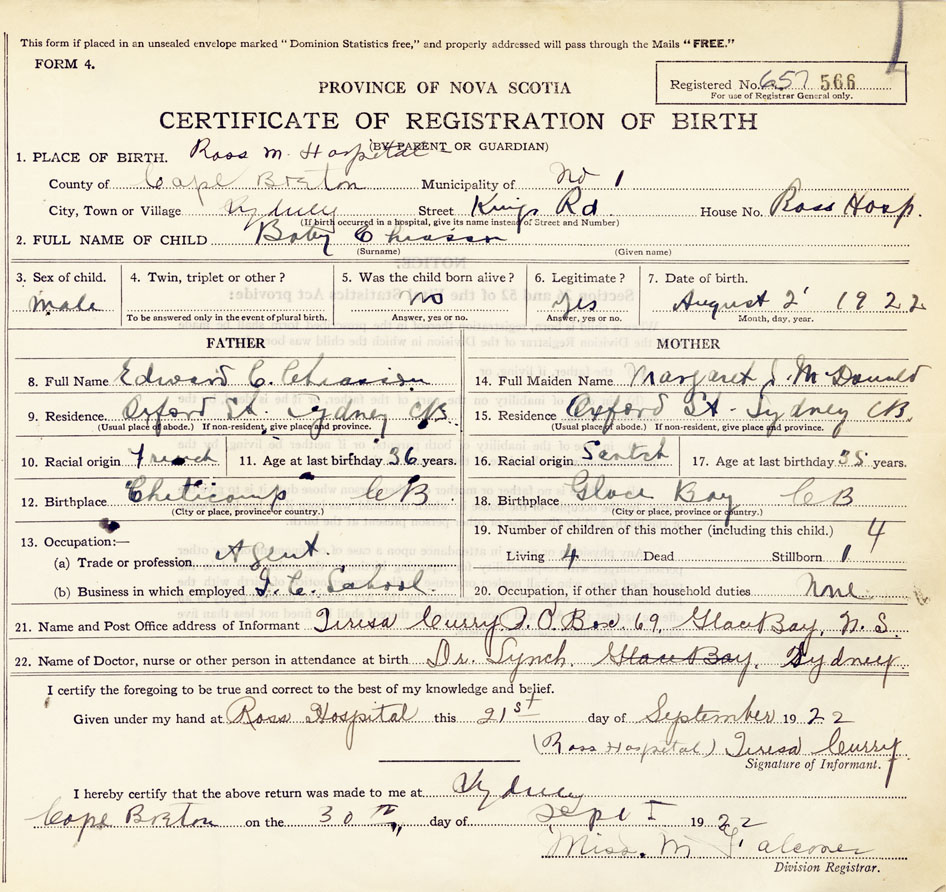 This form if placed in an unsealed envelope marked "Dominion Statistics free," and properly addressed will pass through the Mails "FREE."
FORM 4.
Registered No. 657 566
For use of Registrar General only.
PROVINCE OF NOVA SCOTIA
CERTIFICATE OF REGISTRATION OF BIRTH
(BY PARENT OR GUARDIAN)
1. PLACE OF BIRTH. Ross M. Hospital
County of Cape Breton Municipality of No 1
City, Town or Village Sydney Street Kings Rd. House No. Ross Hosp.
(If birth occurred in a hospital, give its name instead of Street and Number)
2. FULL NAME OF CHILD Baby Chiasson
(Surname) (Given name)
3. Sex of child. 4. Twin, triplet or other? 5. Was the child born alive? 6. Legitimate? 7. Date of birth.
Male No Yes August 2 1922
To be answered only in the event of plural birth. Answer, yes or no. Answer, yes or no. Month, day, year.
FATHER MOTHER
8. Full Name Edward C. Chiasson 14. Full Maiden Name Margaret J. McDonald
9. Residence. Oxford St. Sydney CB. 15. Residence Oxford St - Sydney CB.
(Usual place of abode.) If non-resident, give place and province. (Usual place of abode.) If non-resident, give place and province.
10. Racial origin French 11. Age at last birthday 36 years. 16. Racial origin Scotch 17. Age at last birthday 35 years.
12. Birthplace Cheticamp CB 18. Birthplace Glace Bay CB
(City or place, province or country.) (City or place, province or country.)
19. Number of children of this mother (including this child.) 4
13. Occupation:—
(a) Trade or profession Agent. Living 4 Dead Stillborn 1
(b) Business in which employed I. C. School. 20. Occupation, if other than household duties None
21. Name and Post Office address of Informant Teresa Curry P.O. Box 69, Glace Bay, N. S.
22. Name of Doctor, nurse or other person in attendance at birth Dr. Lynch, Glace Bay, Sydney
I certify the foregoing to be true and correct to the best of my knowledge and belief.
Given under my hand at Ross Hospital this 21st day of September 1922
(Ross Hospital) Teresa Curry
Signature of Informant.
I hereby certify that the above return was made to me at Sydney
Cape Breton on the 30th day of Sept 1922
Miss. M Falconer
Division Registrar.